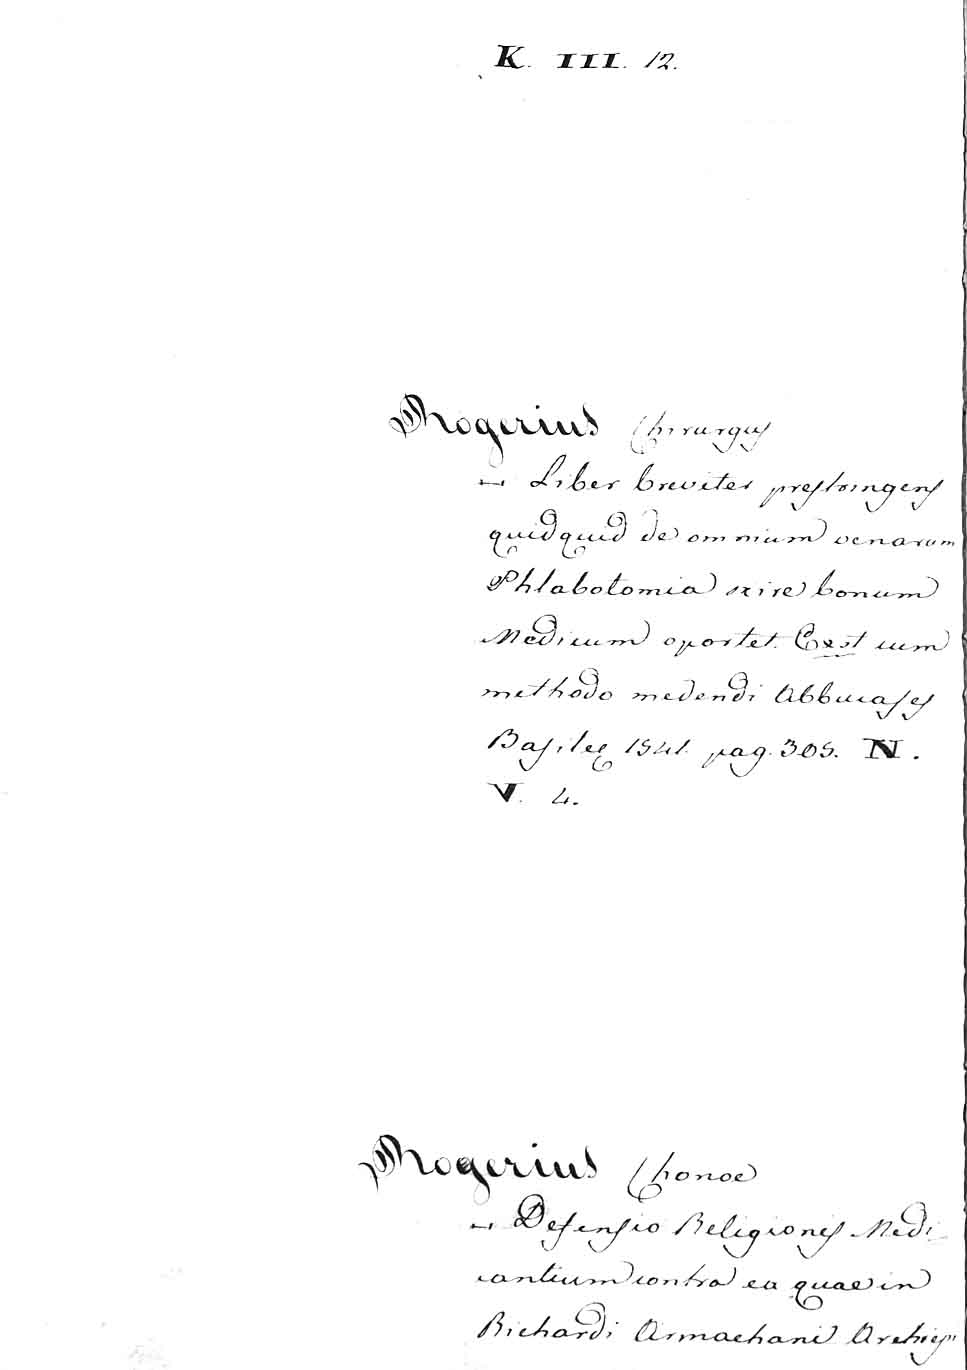 K. III. 12.
Rogerius Chirurgus
— Liber breviter prestringens
quidquid de omnium venarum
Phlabotomia scire bonum
Medicum oportet. Exst cum
methodo medendi Abbucases
Basileę 1541. pag. 305. N.
V. 4.
Rogerius Chonoe
— Defensio Religionis Medi
cantium contra ea quae in
Richardi Armachani Archiep